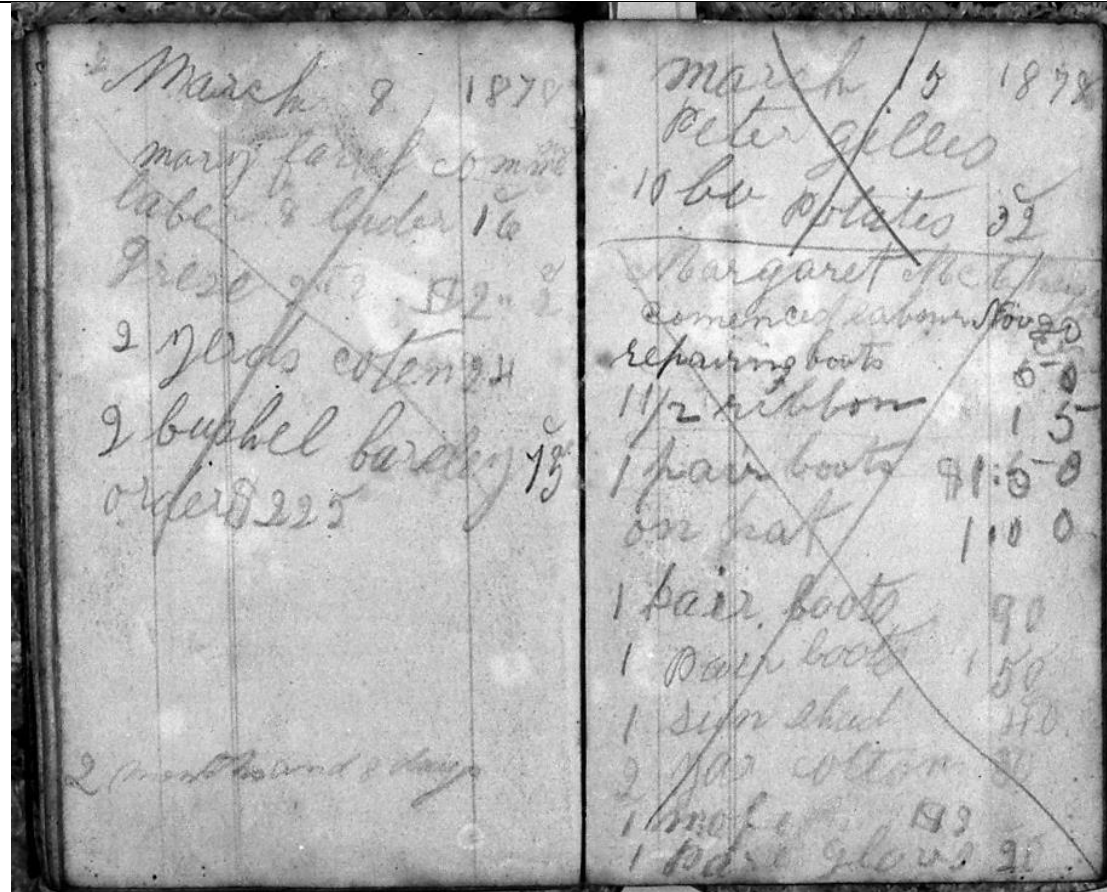 March 8 1878
mary farrel comm
laber 8 16
grese
2 yerds coten 24
2 bushel barley 75
order $225
2 months and 8 days
march 15 1878
Peter gilles
10 bu potates 32
Margaret Mc
comenced labour Nov 20
repairing boots 50
1 1/2 ribbon 15
1 pair boots $1.50
on hat 1.00
1 pair boots 90
1 pair boots 1 50
1 sun shad 40
2 yar cottom
1
1 pare glovs 20